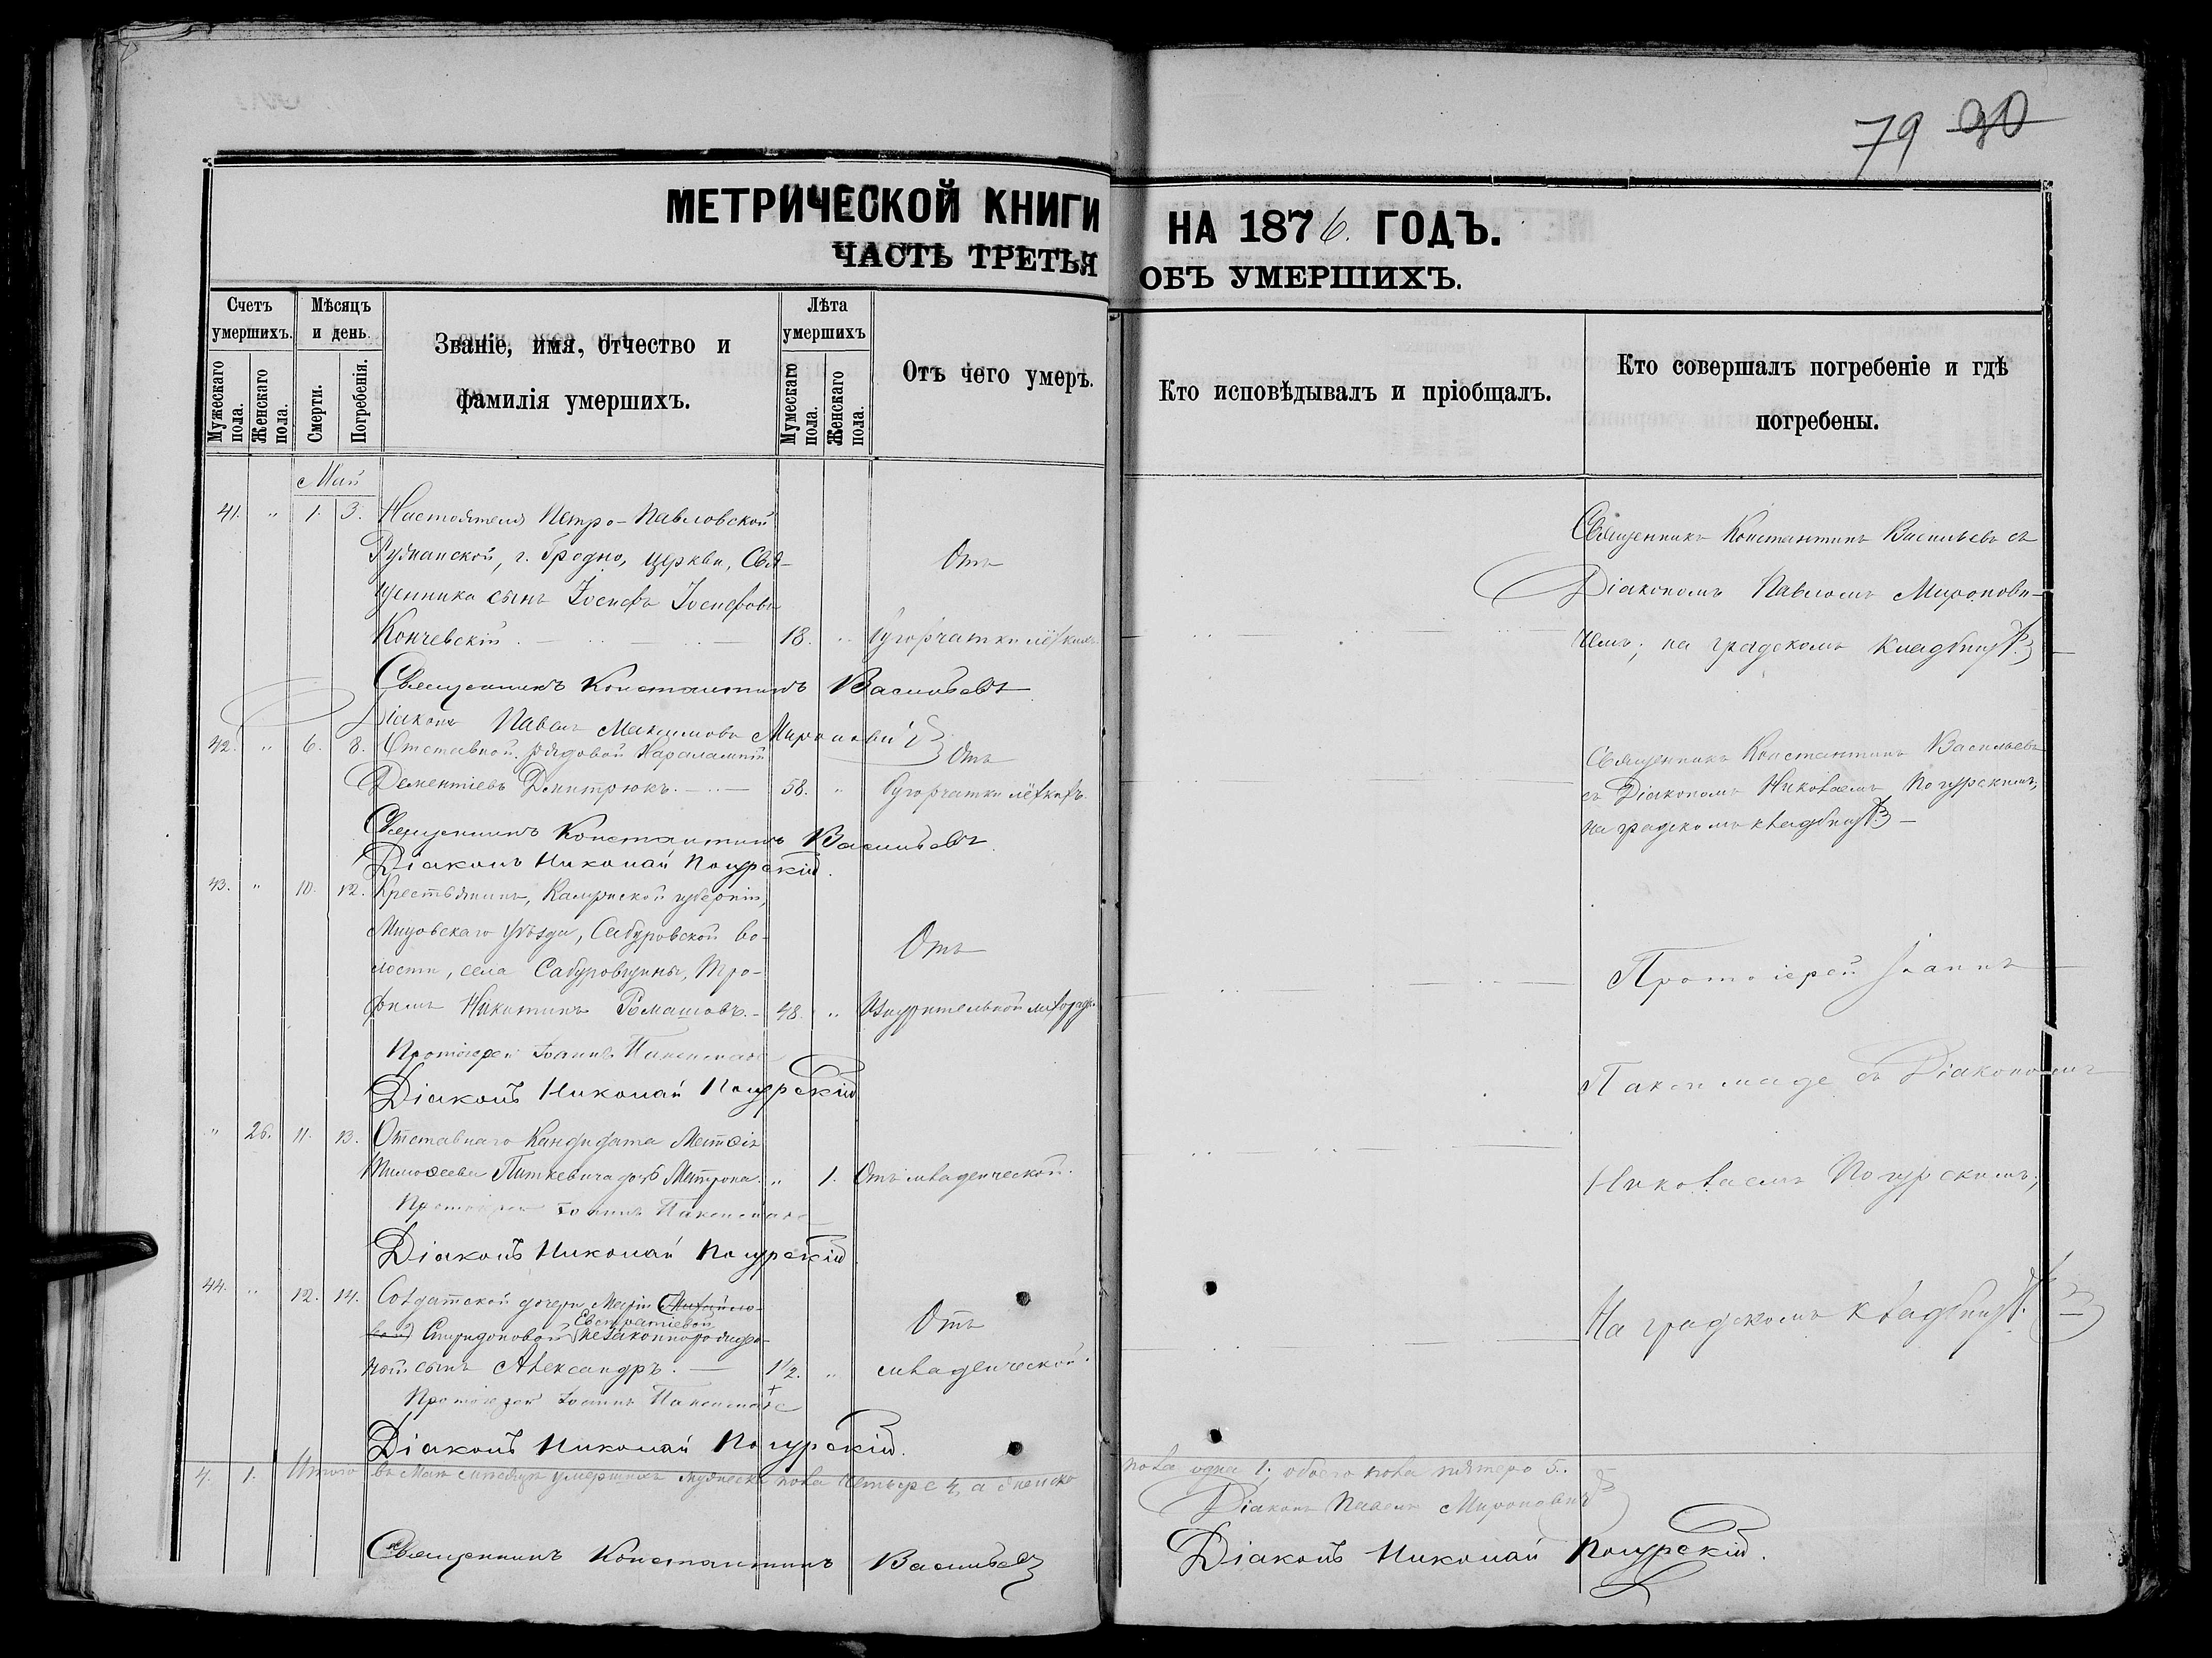 79 90
МЕТРИЧЕСКОЙ КНИГИ НА 1876. ГОДЪ.
ЧАСТЬ ТРЕТЬЯ ОБЪ УМЕРШИХЪ.
Счетъ умершихъ.
Мужескаго пола.
Женскаго пола.
Мѣсяцъ и день.
Смерти.
Погребенія.
Званіе, имя, отчество и
фамилія умершихъ.
Лѣта умершихъ
Мужескаго пола.
Женскаго пола.
Отъ чего умеръ.
Кто исповѣдывалъ и пріобщалъ.
Кто совершалъ погребеніе и гдѣ
погребены.
Май
41. " 1. 3. Настоятеля Петро-Павловской
г. Гродно, церкви, Свя-
щенника сынъ Іосифъ Іосифовъ
Кончевскій 18. "
Отъ
бугорчатки лёгкихъ
Священникъ Константинъ Васильевъ съ
Діакономъ Павломъ Миронови-
чемъ; на градскомъ кладбищѣ.
Священникъ Константинъ Васильевъ
Діаконъ Павелъ Максимовъ Мироновичъ
42. " 6. 8. Отставной рядовой Харалампій
Дементіевъ Дмитрюкъ. 58. "
Отъ
бугорчатки лёгкихъ.
Священникъ Константинъ Васильевъ
съ Діакономъ Николаемъ Погурскимъ,
на градскомъ кладбищѣ
Священникъ Константинъ Васильевъ
Діаконъ Николай Погурскій.
43. " 10. 12. Крестьянинъ, губерніи,
уѣзда, Сабуровской во-
лости, села Сабуровщины, Тро-
фимъ Никитинъ Ромашовъ. 48. "
Отъ
Изнурительной лихорадки
Протоіерей Іоаннъ
Діаконъ Николай Погурскій
Протоіерей Іоаннъ
съ Діакономъ
Николаемъ Погурскимъ;
На градскомъ кладбищѣ.
" 26. 11. 13. Отставнаго Кандидата
Тимоѳеева Питкевича дочь Матрона. " 1. Отъ младенческой.
Протоіерей Іоаннъ
Діаконъ Николай Погурскій
44. " 12. 14. Солдатской дочери Маріи Михайло-
вой Спиридоновой Евстратіевой незаконнорожден-
ный сынъ Александръ. 1½. "
Отъ
младенческой.
Протоіерей Іоаннъ
Діаконъ Николай Погурскій.
4. 1. Итого въ Маѣ мѣсяцѣ умершихъ мужеска пола четыре 4, а женска
пола одна 1; обоего пола пятеро 5.
Діаконъ Павелъ Мироновичъ
Священникъ Константинъ Васильевъ
Діаконъ Николай Погурскій.